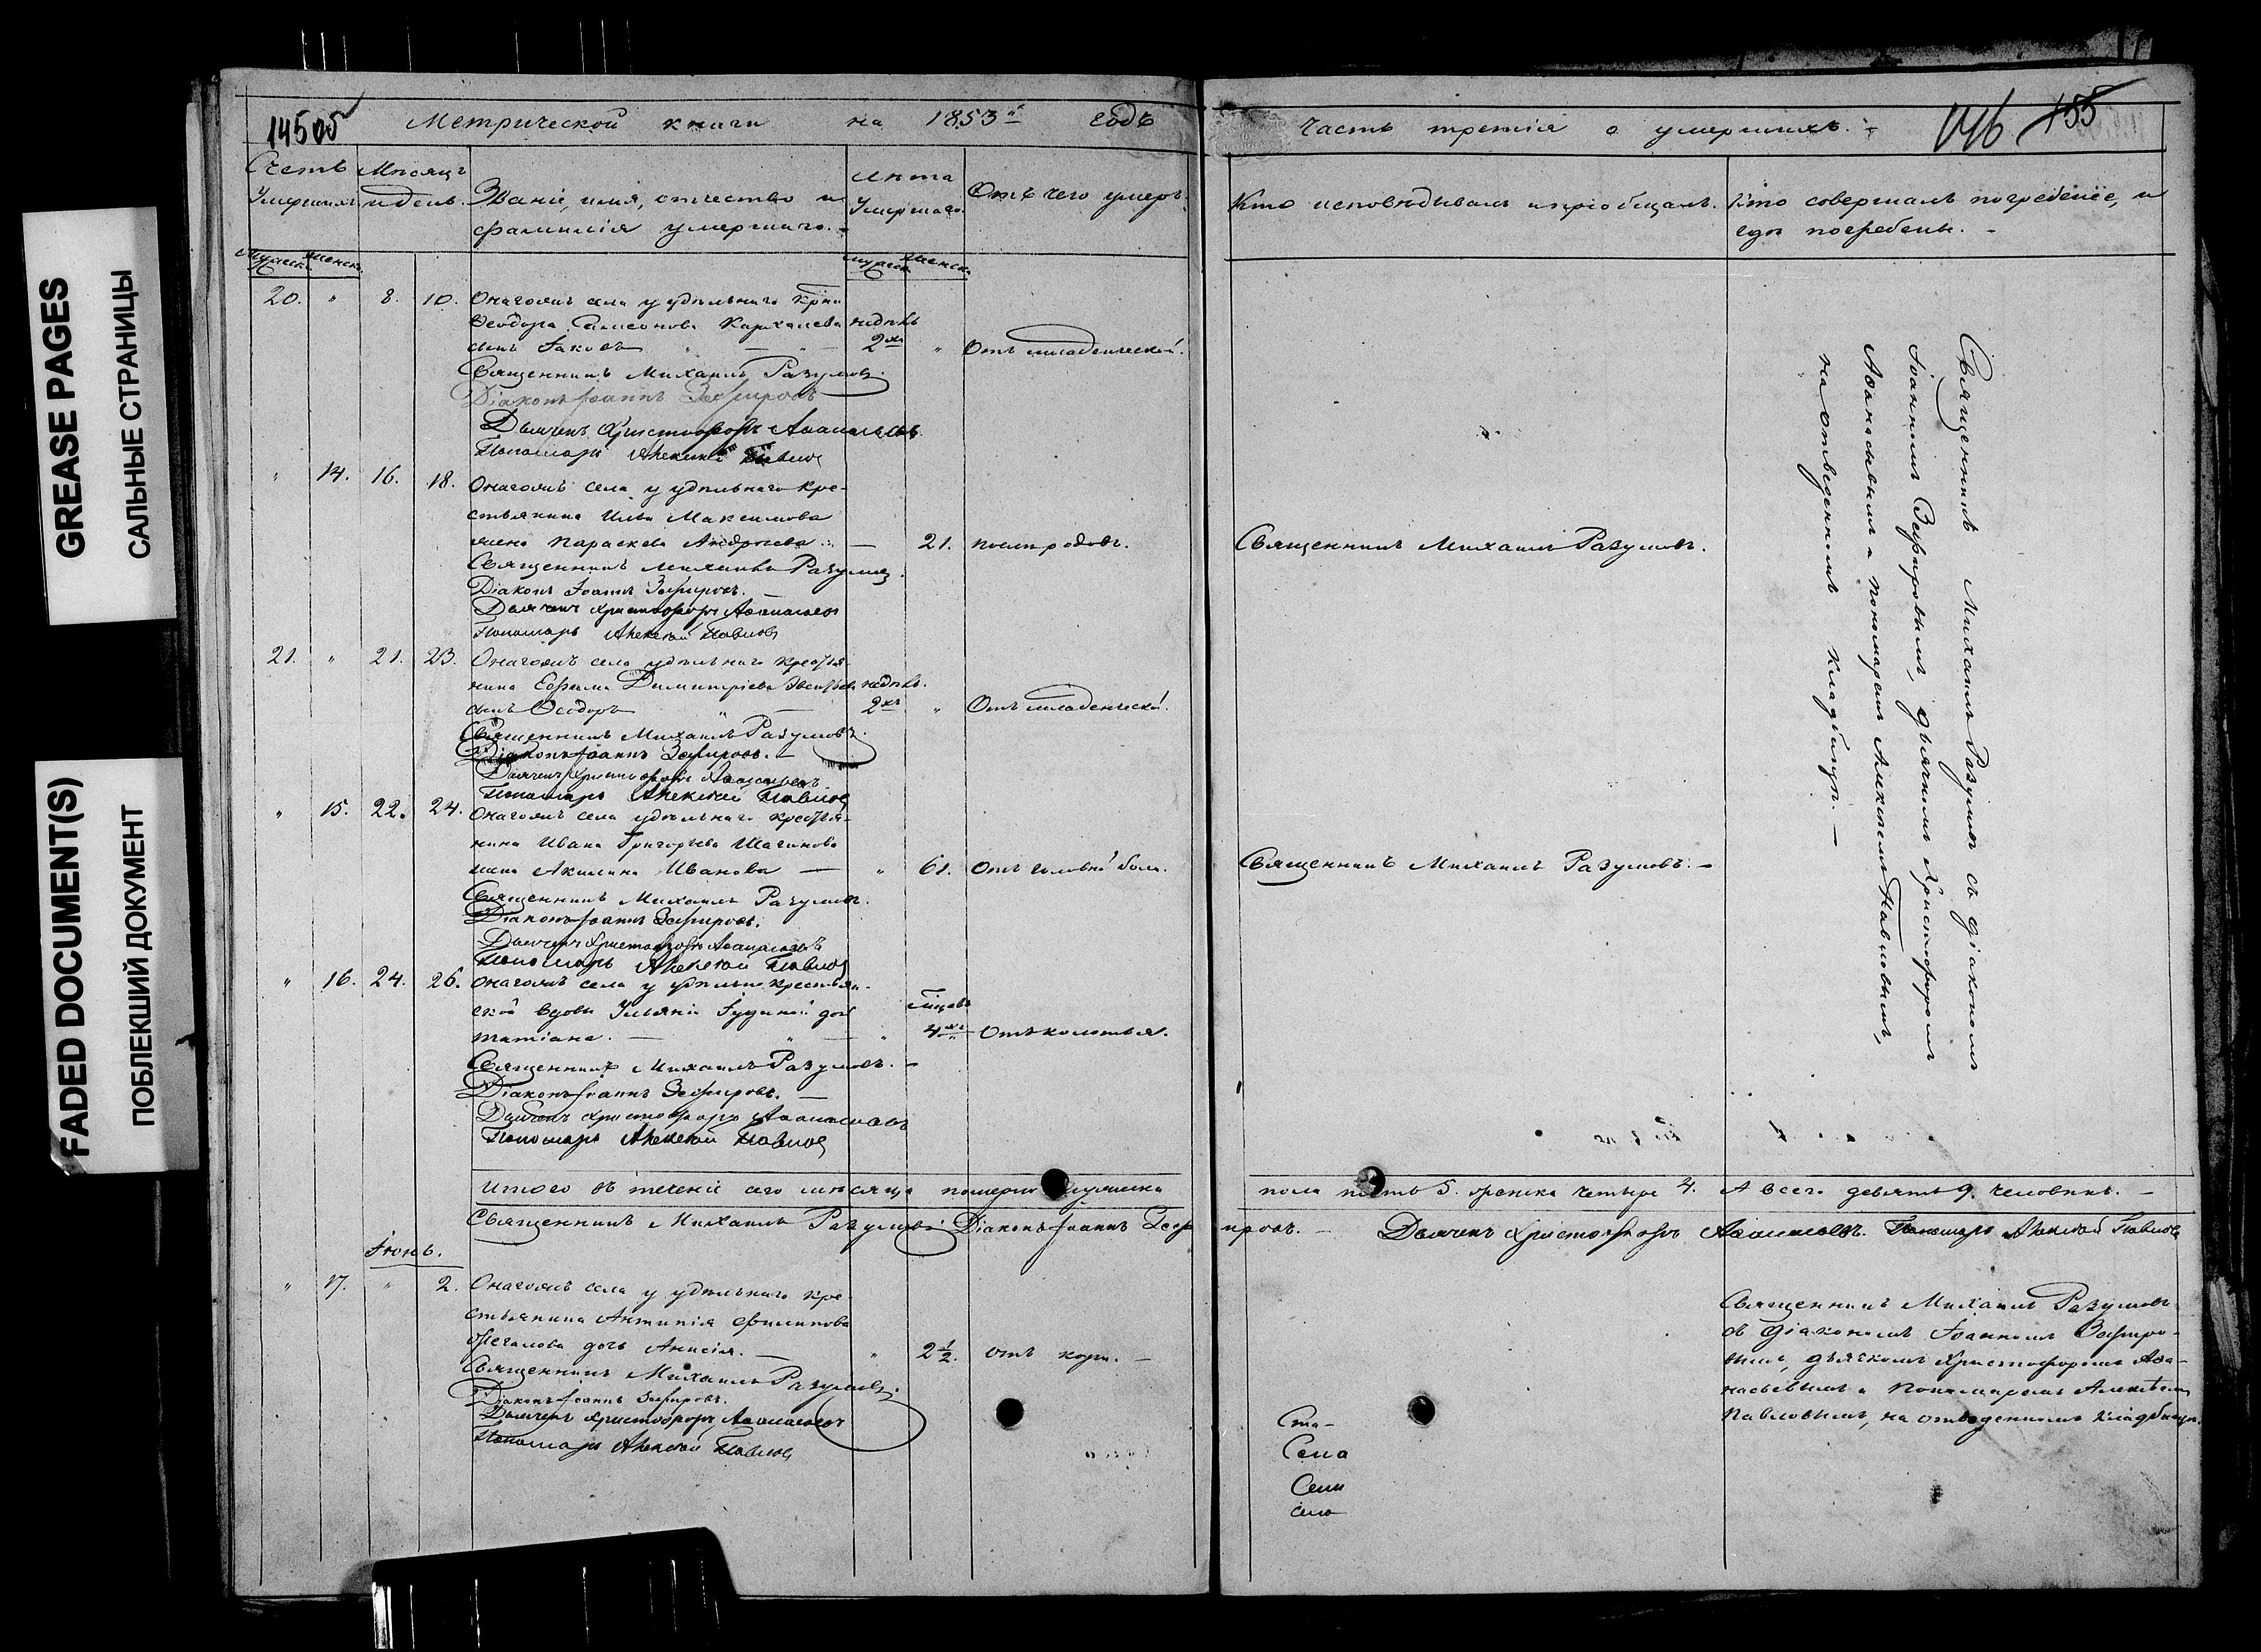 GREASE PAGES
САЛЬНЫЕ СТРАНИЦЫ
FADED DOCUMENT(S)
ПОБЛЕКШИЙ ДОКУМЕНТ
14505
Метрической книги на 1853й годъ
Счетъ Умершихъ
Мѣсяцъ и день.
Званіе, имя, отчество и фамилія умершаго.
Лѣта Умершаго.
Отъ чего умеръ.
Мужеск. Женск.
Мужеск. Женск.
20. " 8. 10. Онагожъ села у удѣльнаго крѣ-
Ѳеодора Симеонова недѣль
сынъ Іаковъ 2хъ " Отъ младенческой.
Священникъ Михаилъ Разумовъ.
Діаконъ Іоаннъ Зефировъ
Дьячекъ Христофоръ Аѳанасьевъ
Пономарь Алексѣй Павловъ
" 14. 16. 18. Онагожъ села у удѣльнаго кре-
стьянина Ильи Максимова
жена Параскева Андреева. — 21. послѣ родовъ.
Священникъ Михаилъ Разумовъ.
Діаконъ Іоаннъ Зефировъ.
Дьячекъ Христофоръ Аѳанасьевъ
Пономарь Алексѣй Павловъ
21. " 21. 23. Онагожъ села удѣльнаго крестья-
нина Ефима Димитріева недѣль.
сынъ Ѳеодоръ 2хъ " Отъ младенческой.
Священникъ Михаилъ Разумовъ.
Діаконъ Іоаннъ Зефировъ.
Дьячекъ Христофоръ Аѳанасьевъ
Пономарь Алексѣй Павловъ
" 15. 22. 24. Онагожъ села удѣльнаго крестья-
нина Ивана Григорьева Шагинова
жена Акилина Иванова — " 61. Отъ головной боли.
Священникъ Михаилъ Разумовъ.
Діаконъ Іоаннъ Зефировъ.
Дьячекъ Христофоръ Аѳанасьевъ
Пономарь Алексѣй Павловъ
" 16. 24. 26. Онагожъ села у удѣльно крестьян-
ской вдовы дочь
Татіана. — " 4хъ Отъ колотья.
Священникъ Михаилъ Разумовъ.
Діаконъ Іоаннъ Зефировъ.
Дьячекъ Христофоръ Аѳанасьевъ
Пономарь Алексѣй Павловъ
Итого въ теченіе сего мѣсяца померло мужеска
Священникъ Михаилъ Разумовъ. Діаконъ Іоаннъ Зеф
Іюнь.
" 17. " 2. Онагожъ села у удѣльнаго кре-
стьянина Антипія Филипова
дочь Анисія. — " 2½. отъ кори.
Священникъ Михаилъ Разумовъ.
Діаконъ Іоаннъ Зефировъ.
Дьячекъ Христофоръ Аѳанасьевъ
Пономарь Алексѣй Павловъ
Часть третія о умершихъ.
146 155
Кто исповѣдывалъ и пріобщалъ.
Кто совершалъ погребеніе, и
гдѣ погребены.
Священникъ Михаилъ Разумовъ.
Священникъ Михаилъ Разумовъ.
Священникъ Михаилъ Разумовъ съ діакономъ
Іоанномъ Зефировымъ, дьячкомъ Христофоромъ
Аѳанасьевымъ и пономаремъ Алексѣемъ Павловымъ,
на отведенномъ кладбищѣ.
пола пять 5. женска четыре 4. А всего девять 9. человѣкъ.
ировъ. Дьячекъ Христофоръ Аѳанасьевъ. Пономарь Алексѣй Павловъ
Священникъ Михаилъ Разумовъ
съ діакономъ Іоанномъ Зефиро-
вымъ, дьячкомъ Христофоромъ Аѳа-
насьевымъ и Пономаремъ Алексѣемъ
Павловымъ, на отведенномъ кладбищѣ.
Ста-
Села
Сели
село